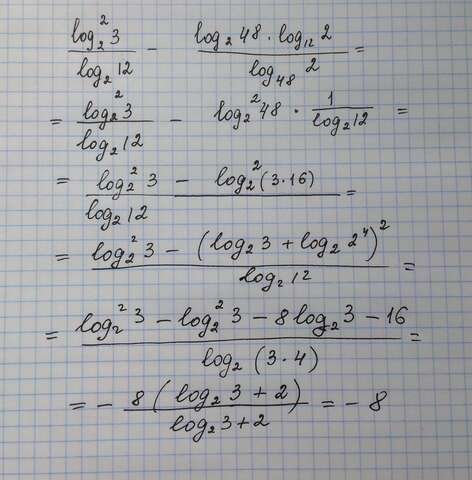 log₂²3 / log₂12 − (log₂48 · log₁₂2) / log₄₈2 =
= log₂²3 / log₂12 − log₂²48 · 1 / log₂12 =
= (log₂²3 − log₂²(3·16)) / log₂12 =
= (log₂²3 − (log₂3 + log₂2⁴)²) / log₂12 =
= (log₂²3 − log₂²3 − 8log₂3 − 16) / log₂(3·4) =
= − 8(log₂3 + 2) / (log₂3 + 2) = − 8